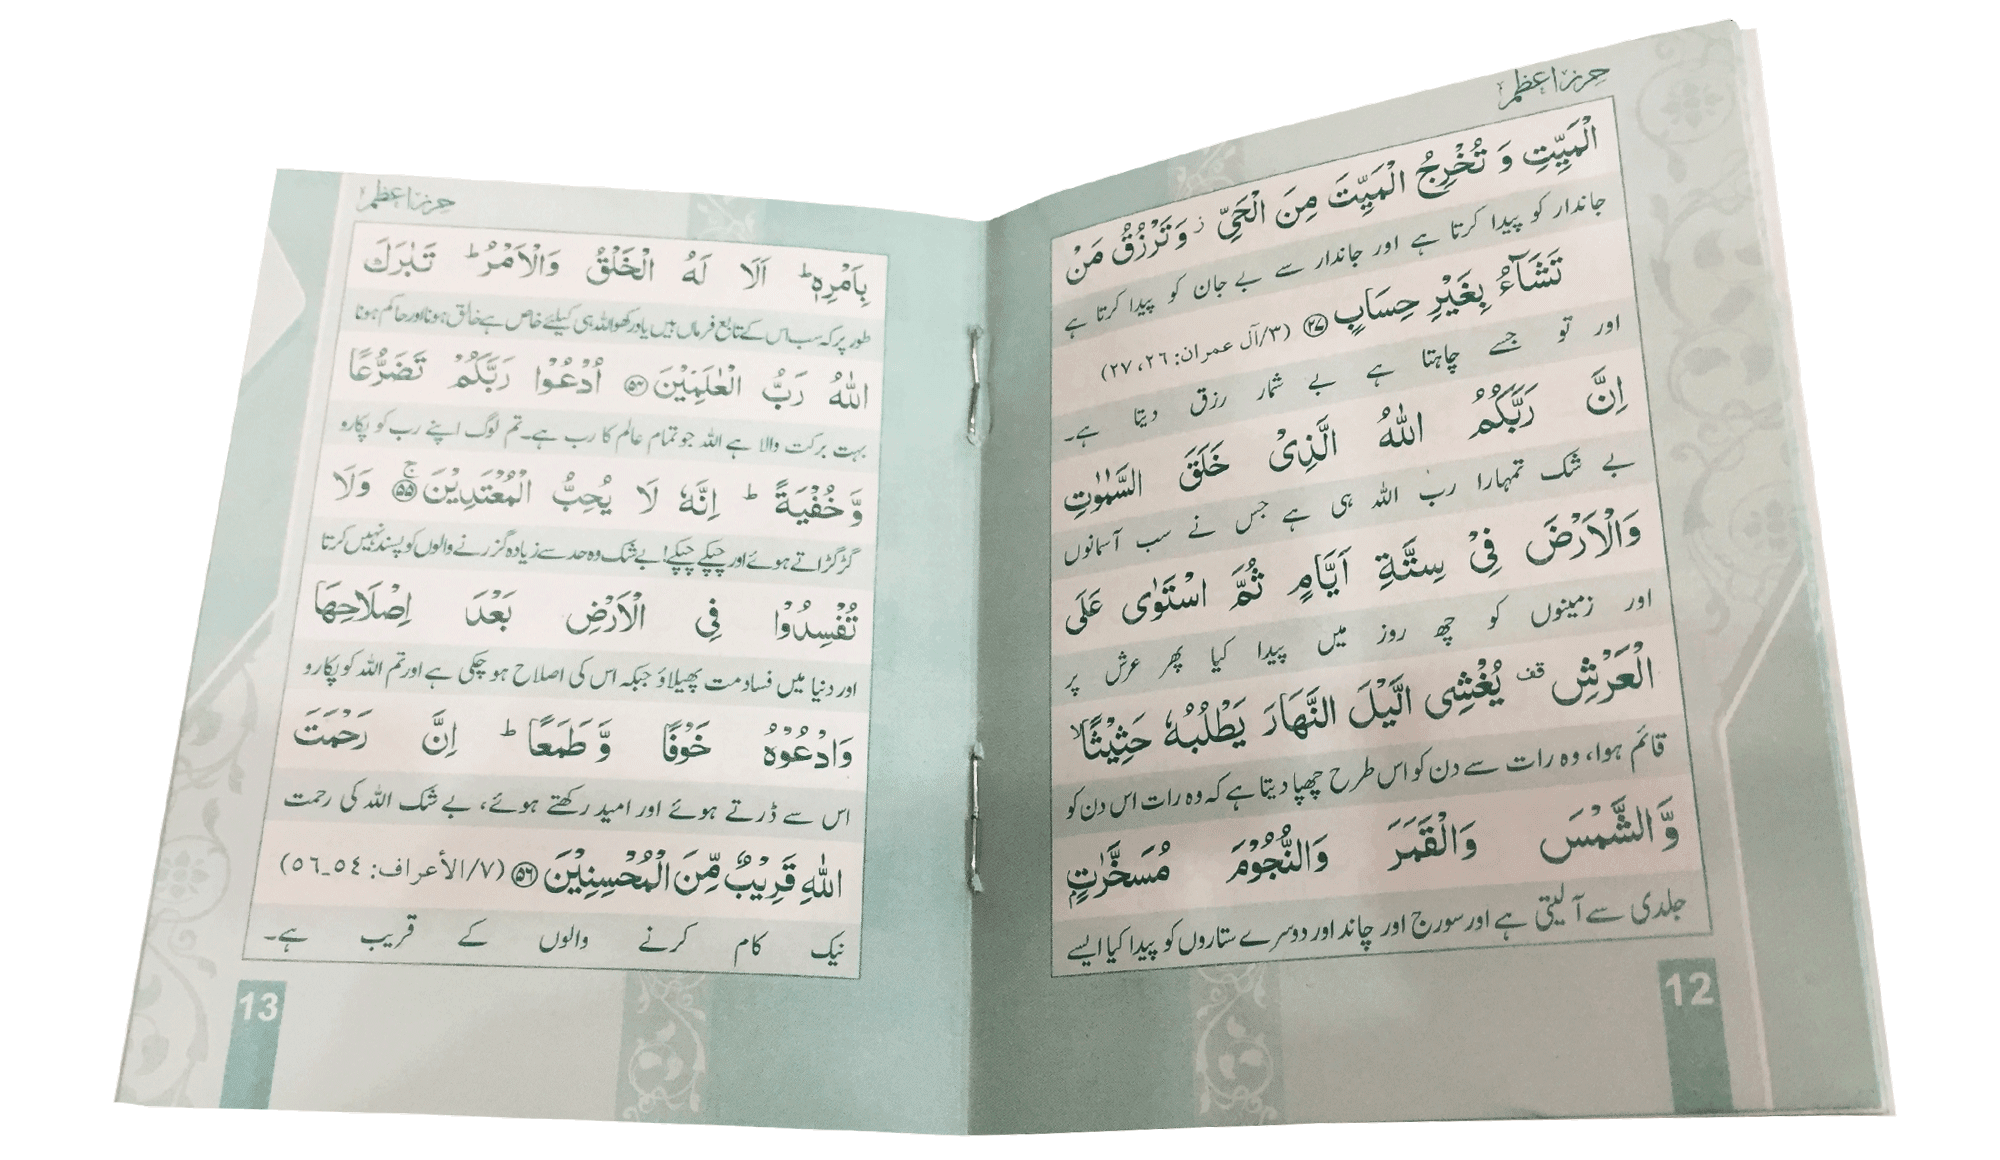 حرزاعظم
الْمَيِّتِ وَ تُخْرِجُ الْمَيِّتَ مِنَ الْحَىِّ ز وَتَرْزُقُ مَنْ
جاندار کو پیدا کرتا ہے اور جاندار سے بے جان کو پیدا کرتا ہے
تَشَآءُ بِغَيْرِ حِسَابٍ ﴿۲۷﴾ (۳/آل عمران: ۲۶، ۲۷)
اور تو جسے چاہتا ہے بے شمار رزق دیتا ہے۔
اِنَّ رَبَّكُمُ اللّٰهُ الَّذِىْ خَلَقَ السَّمٰوٰتِ
بے شک تمہارا رب اللہ ہی ہے جس نے سب آسمانوں
وَالْاَرْضَ فِىْ سِتَّةِ اَيَّامٍ ثُمَّ اسْتَوٰى عَلَى
اور زمینوں کو چھ روز میں پیدا کیا پھر عرش پر
الْعَرْشِ قف يُغْشِى الَّيْلَ النَّهَارَ يَطْلُبُهٗ حَثِيْثًا لا
قائم ہوا، وہ رات سے دن کو اس طرح چھپا دیتا ہے کہ وہ رات اس دن کو
وَّالشَّمْسَ وَالْقَمَرَ وَالنُّجُوْمَ مُسَخَّرٰتٍۭ
جلدی سے آ لیتی ہے اور سورج اور چاند اور دوسرے ستاروں کو پیدا کیا ایسے
12
حرزاعظم
بِاَمْرِهٖ ط اَلَا لَهُ الْخَلْقُ وَالْاَمْرُ ط تَبٰرَكَ
طور پر کہ سب اس کے تابع فرماں ہیں یاد رکھو اللہ ہی کیلئے خاص ہے خالق ہونا اور حاکم ہونا
اللّٰهُ رَبُّ الْعٰلَمِيْنَ ﴿۵۴﴾ اُدْعُوْا رَبَّكُمْ تَضَرُّعًا
بہت برکت والا ہے اللہ جو تمام عالم کا رب ہے۔ تم لوگ اپنے رب کو پکارو
وَّخُفْيَةً ط اِنَّهٗ لَا يُحِبُّ الْمُعْتَدِيْنَ ﴿۵۵﴾ ج وَلَا
گڑگڑاتے ہوئے اور چپکے چپکے! بے شک وہ حد سے زیادہ گزرنے والوں کو پسند نہیں کرتا
تُفْسِدُوْا فِى الْاَرْضِ بَعْدَ اِصْلَاحِهَا
اور دنیا میں فساد مت پھیلاؤ جبکہ اس کی اصلاح ہو چکی ہے اور تم اللہ کو پکارو
وَادْعُوْهُ خَوْفًا وَّطَمَعًا ط اِنَّ رَحْمَتَ
اس سے ڈرتے ہوئے اور امید رکھتے ہوئے، بے شک اللہ کی رحمت
اللّٰهِ قَرِيْبٌ مِّنَ الْمُحْسِنِيْنَ ﴿۵۶﴾ (۷/الأعراف: ۵۴۔۵۶)
نیک کام کرنے والوں کے قریب ہے۔
13